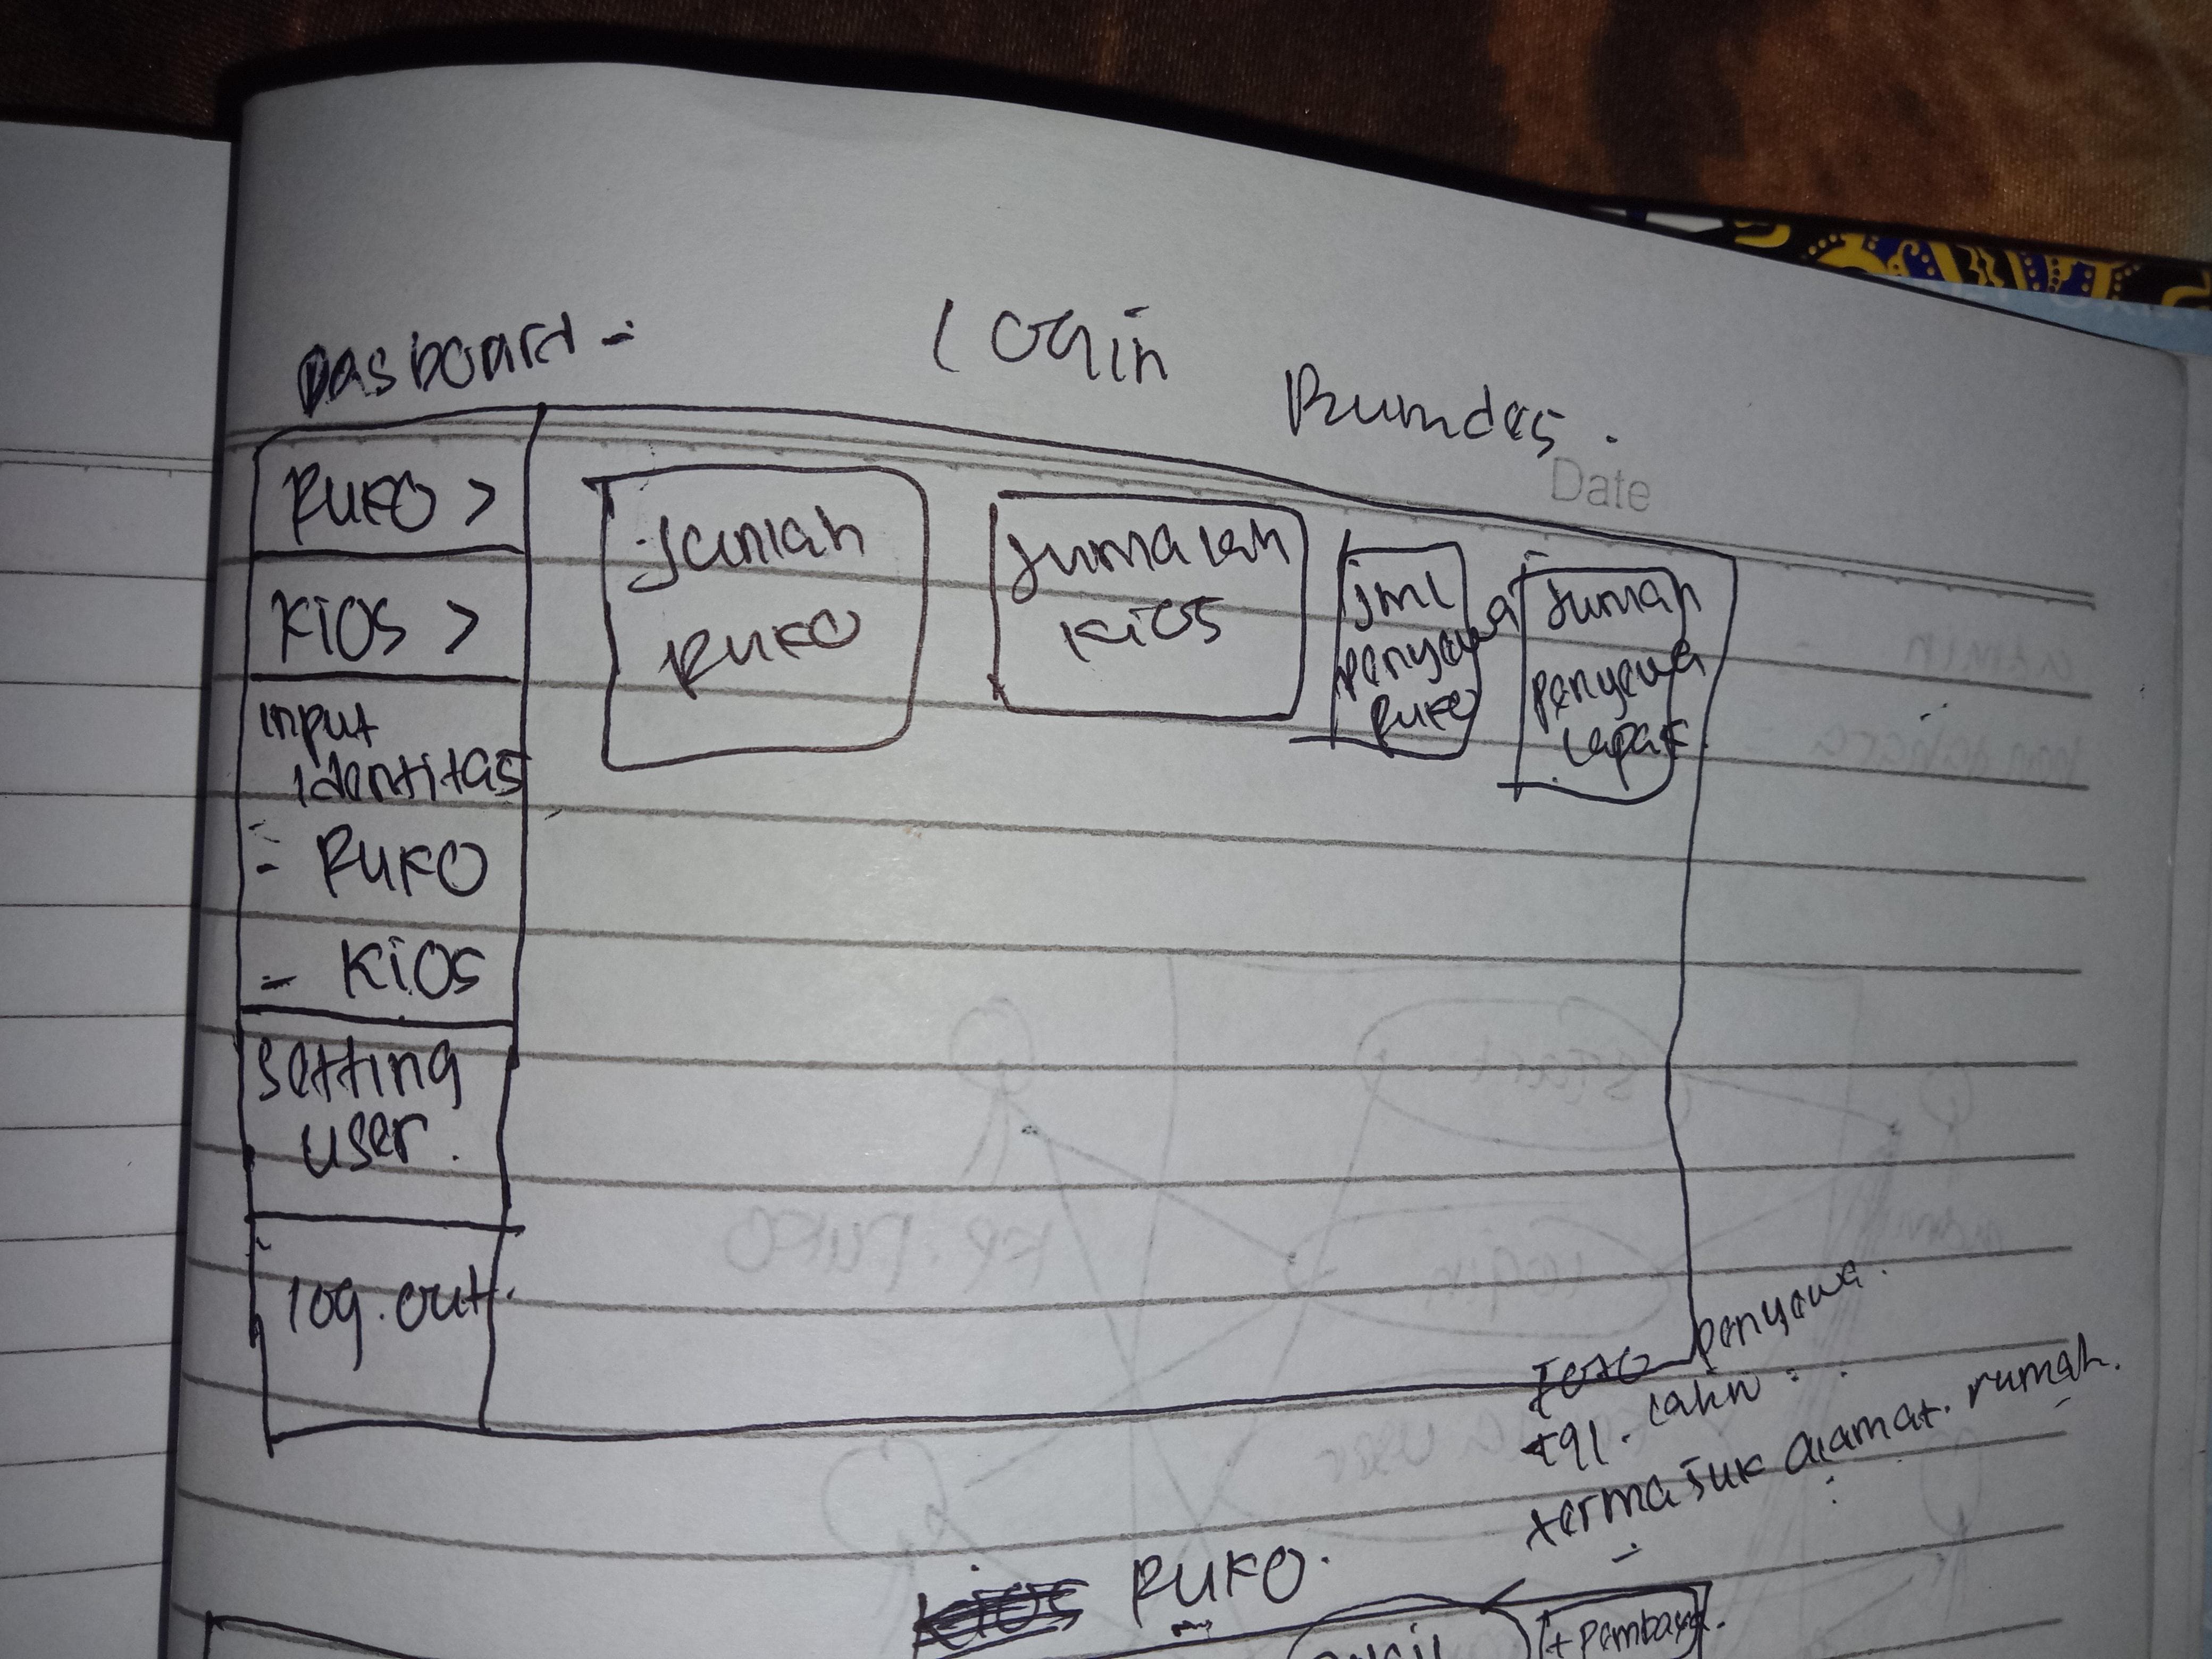 Dasboard =
Login
Bumdes.
Date
RUKO >
KiOS >
input
identitas
- RUKO
- KiOS
setting
user.
log.out.
jumlah
RUKO
Jumalah
KiOS
jml
penyewa
Ruko
Jumah
penyewa
lapak.
Foto penyewa.
tgl. lahir :
termasuk alamat. rumah.
RUKO.